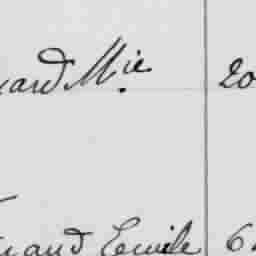 uard Mie 20
uand Emile 6